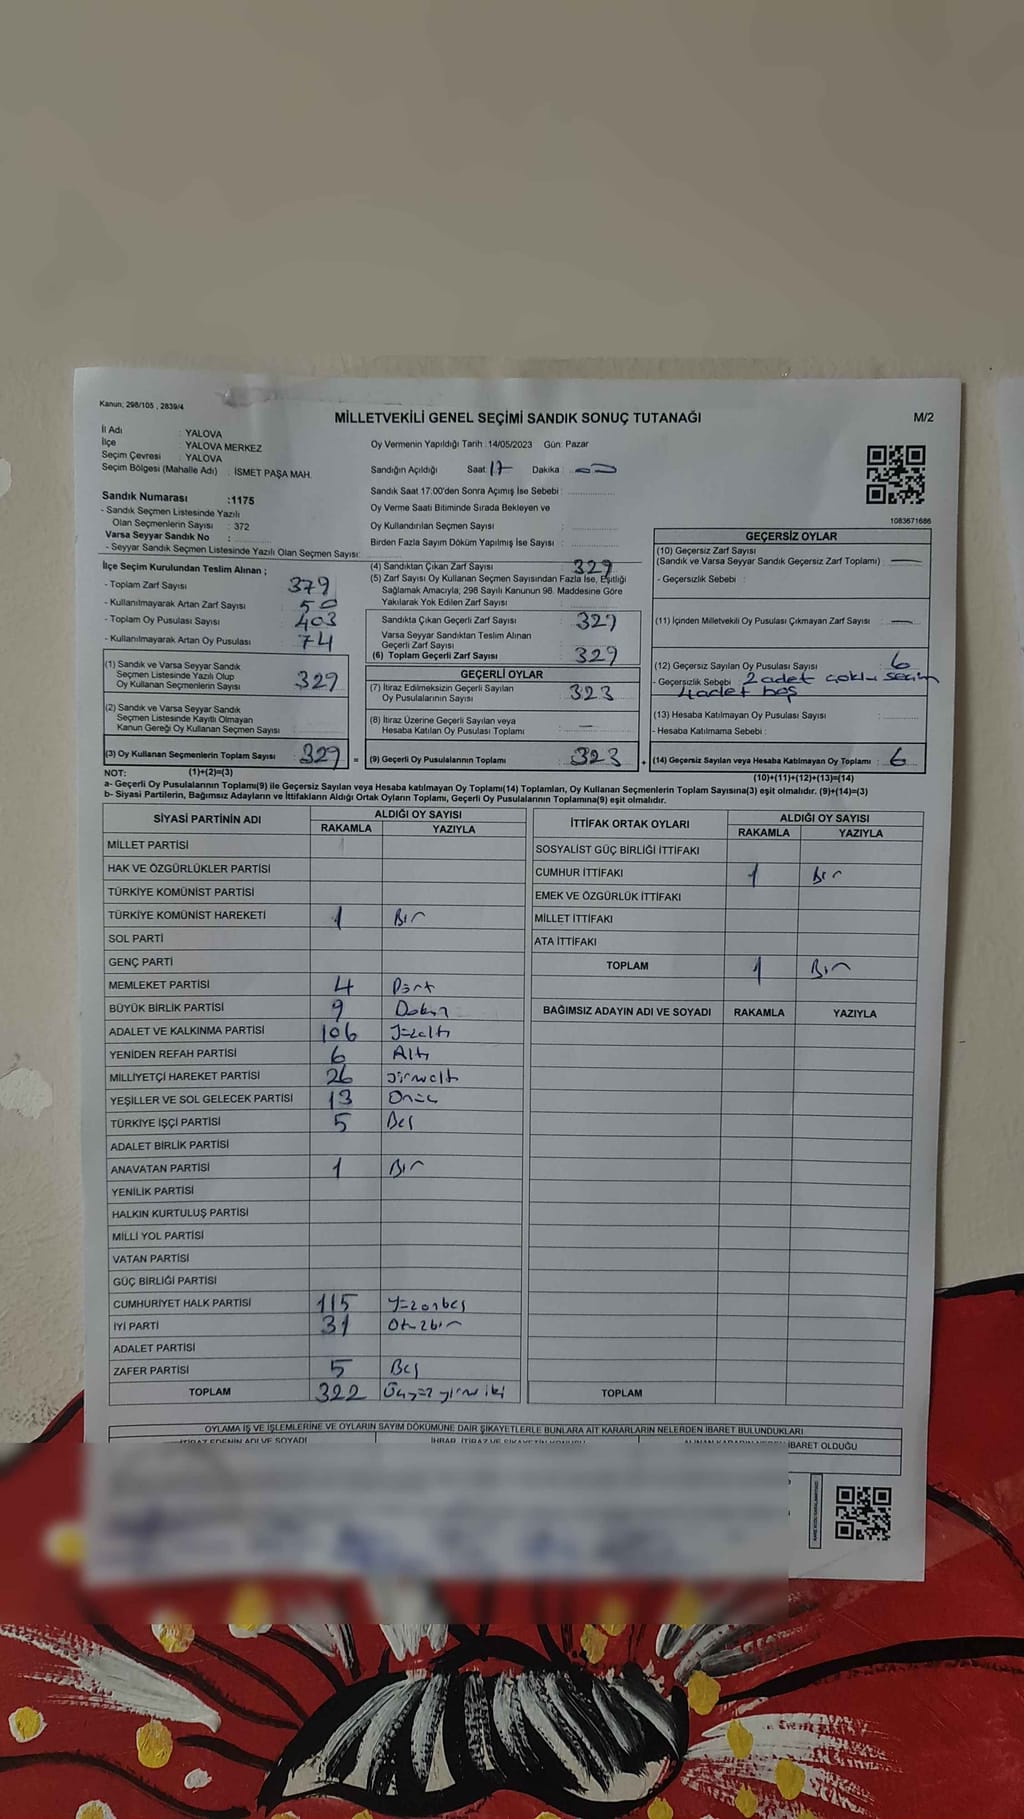 Kanun; 298/105 , 2839/4
MİLLETVEKİLİ GENEL SEÇİMİ SANDIK SONUÇ TUTANAĞI
M/2
İl Adı : YALOVA
İlçe : YALOVA MERKEZ
Seçim Çevresi : YALOVA
Seçim Bölgesi (Mahalle Adı) : İSMET PAŞA MAH.
Sandık Numarası :1175
- Sandık Seçmen Listesinde Yazılı
Olan Seçmenlerin Sayısı : 372
Varsa Seyyar Sandık No :
- Seyyar Sandık Seçmen Listesinde Yazılı Olan Seçmen Sayısı:
Oy Vermenin Yapıldığı Tarih :14/05/2023 Gün: Pazar
Sandığın Açıldığı Saat: 17 Dakika : 00
Sandık Saat 17:00'den Sonra Açımış İse Sebebi :
Oy Verme Saati Bitiminde Sırada Bekleyen ve
Oy Kullandırılan Seçmen Sayısı :
Birden Fazla Sayım Döküm Yapılmış İse Sayısı :
1083671686
İlçe Seçim Kurulundan Teslim Alınan ;
- Toplam Zarf Sayısı : 379
- Kullanılmayarak Artan Zarf Sayısı : 50
- Toplam Oy Pusulası Sayısı : 403
- Kullanılmayarak Artan Oy Pusulası : 74
(1) Sandık ve Varsa Seyyar Sandık
Seçmen Listesinde Yazılı Olup
Oy Kullanan Seçmenlerin Sayısı : 329
(2) Sandık ve Varsa Seyyar Sandık
Seçmen Listesinde Kayıtlı Olmayan
Kanun Gereği Oy Kullanan Seçmen Sayısı :
(3) Oy Kullanan Seçmenlerin Toplam Sayısı : 329 =
(1)+(2)=(3)
(4) Sandıktan Çıkan Zarf Sayısı : 329
(5) Zarf Sayısı Oy Kullanan Seçmen Sayısından Fazla İse, Eşitliği
Sağlamak Amacıyla, 298 Sayılı Kanunun 98. Maddesine Göre
Yakılarak Yok Edilen Zarf Sayısı :
Sandıkta Çıkan Geçerli Zarf Sayısı : 329
Varsa Seyyar Sandıktan Teslim Alınan
Geçerli Zarf Sayısı :
(6) Toplam Geçerli Zarf Sayısı : 329
GEÇERLİ OYLAR
(7) İtiraz Edilmeksizin Geçerli Sayılan
Oy Pusulalarının Sayısı : 323
(8) İtiraz Üzerine Geçerli Sayılan veya
Hesaba Katılan Oy Pusulası Toplamı : —
(9) Geçerli Oy Pusulalarının Toplamı : 323 +
GEÇERSİZ OYLAR
(10) Geçersiz Zarf Sayısı
(Sandık ve Varsa Seyyar Sandık Geçersiz Zarf Toplamı) : —
- Geçersizlik Sebebi :
(11) İçinden Milletvekili Oy Pusulası Çıkmayan Zarf Sayısı : —
(12) Geçersiz Sayılan Oy Pusulası Sayısı : 6
- Geçersizlik Sebebi : 2 adet çoklu seçim
4 adet boş
(13) Hesaba Katılmayan Oy Pusulası Sayısı :
- Hesaba Katılmama Sebebi :
(14) Geçersiz Sayılan veya Hesaba Katılmayan Oy Toplamı : 6
(10)+(11)+(12)+(13)=(14)
NOT:
a- Geçerli Oy Pusulalarının Toplamı(9) ile Geçersiz Sayılan veya Hesaba katılmayan Oy Toplamı(14) Toplamları, Oy Kullanan Seçmenlerin Toplam Sayısına(3) eşit olmalıdır. (9)+(14)=(3)
b- Siyasi Partilerin, Bağımsız Adayların ve İttifakların Aldığı Ortak Oyların Toplamı, Geçerli Oy Pusulalarının Toplamına(9) eşit olmalıdır.
SİYASİ PARTİNİN ADI
ALDIĞI OY SAYISI
RAKAMLA YAZIYLA
MİLLET PARTİSİ
HAK VE ÖZGÜRLÜKLER PARTİSİ
TÜRKİYE KOMÜNİST PARTİSİ
TÜRKİYE KOMÜNİST HAREKETİ 1 Bir
SOL PARTİ
GENÇ PARTİ
MEMLEKET PARTİSİ 4 Dört
BÜYÜK BİRLİK PARTİSİ 9 Dokuz
ADALET VE KALKINMA PARTİSİ 106 Yüzaltı
YENİDEN REFAH PARTİSİ 6 Altı
MİLLİYETÇİ HAREKET PARTİSİ 26 yirmialtı
YEŞİLLER VE SOL GELECEK PARTİSİ 13 Onüç
TÜRKİYE İŞÇİ PARTİSİ 5 Beş
ADALET BİRLİK PARTİSİ
ANAVATAN PARTİSİ 1 Bir
YENİLİK PARTİSİ
HALKIN KURTULUŞ PARTİSİ
MİLLİ YOL PARTİSİ
VATAN PARTİSİ
GÜÇ BİRLİĞİ PARTİSİ
CUMHURİYET HALK PARTİSİ 115 Yüzonbeş
İYİ PARTİ 31 Otuzbir
ADALET PARTİSİ
ZAFER PARTİSİ 5 Beş
TOPLAM 322 Üçyüz yirmi iki
İTTİFAK ORTAK OYLARI
ALDIĞI OY SAYISI
RAKAMLA YAZIYLA
SOSYALİST GÜÇ BİRLİĞİ İTTİFAKI
CUMHUR İTTİFAKI 1 Bir
EMEK VE ÖZGÜRLÜK İTTİFAKI
MİLLET İTTİFAKI
ATA İTTİFAKI
TOPLAM 1 Bir
BAĞIMSIZ ADAYIN ADI VE SOYADI RAKAMLA YAZIYLA
TOPLAM
OYLAMA İŞ VE İŞLEMLERİNE VE OYLARIN SAYIM DÖKÜMÜNE DAİR ŞİKAYETLERLE BUNLARA AİT KARARLARIN NELERDEN İBARET BULUNDUKLARI
İTİRAZ EDENİN ADI VE SOYADI
İHBAR, İTİRAZ VE ŞİKAYETİN KONUSU
İBARET OLDUĞU